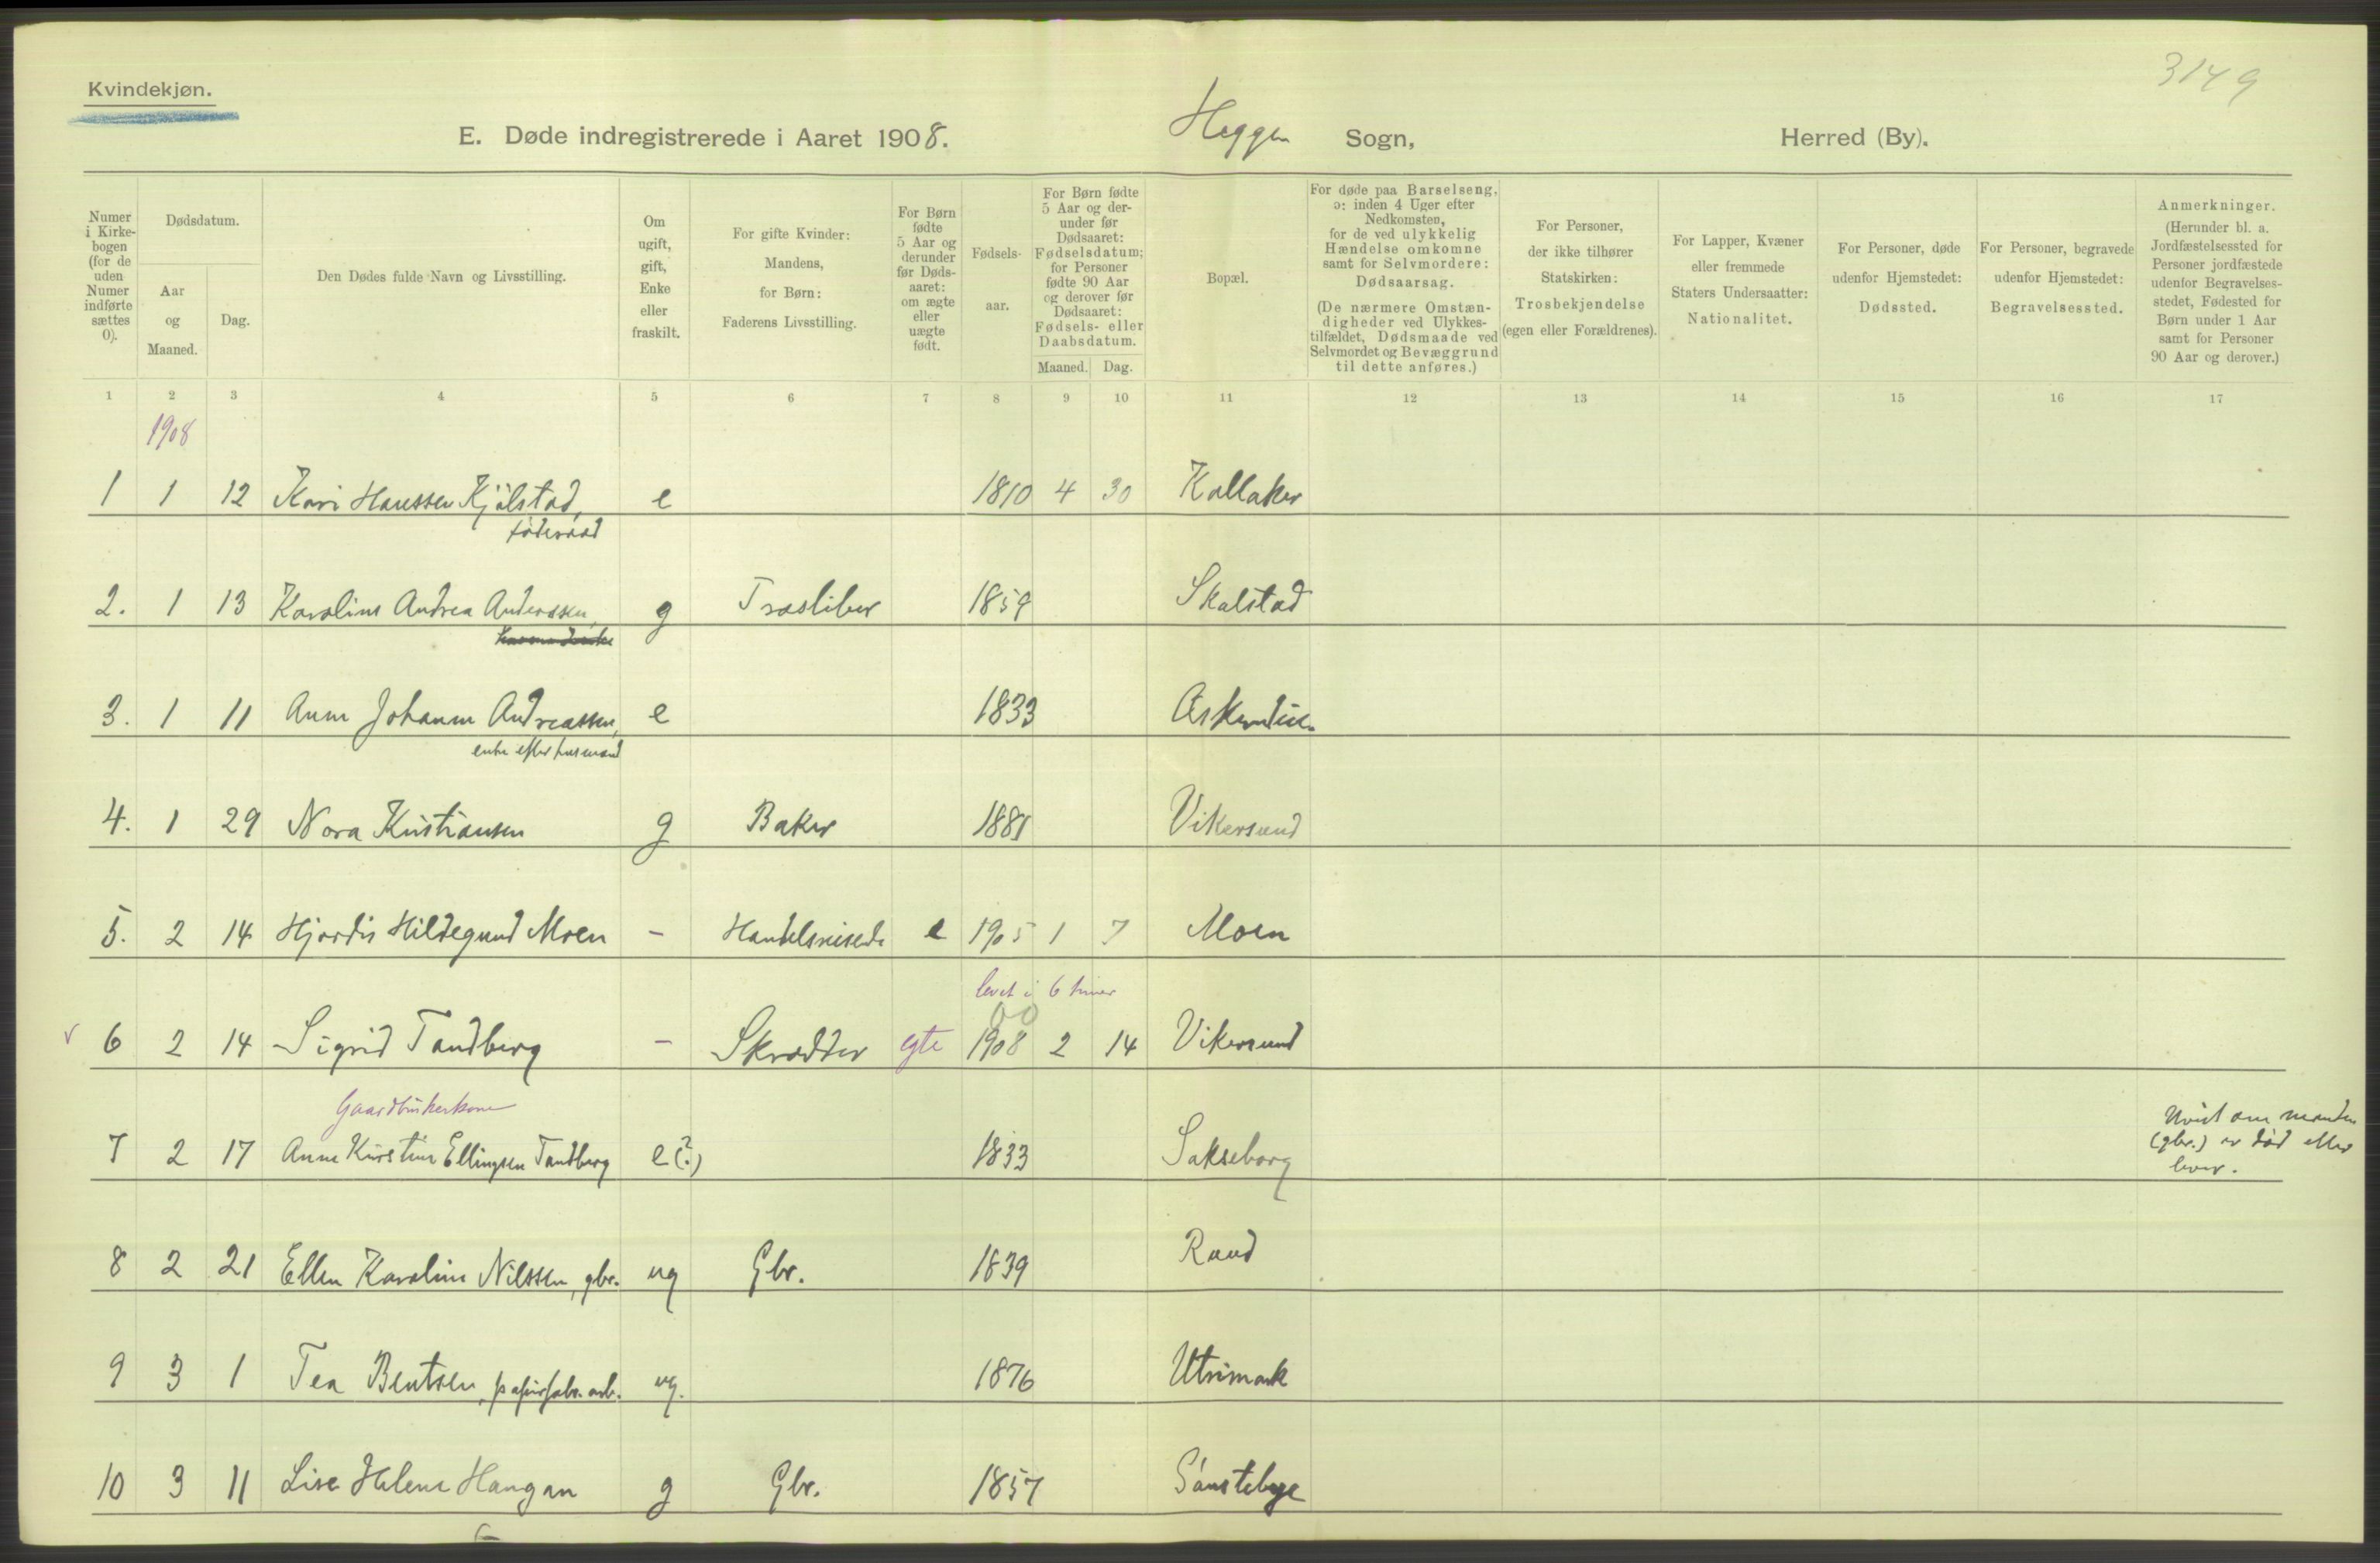 3149
Kvindekjøn.
E. Døde indregistrerede i Aaret 1908. Heggen Sogn, Herred (By).
Numer i Kirkebogen (for de uden Numer indførte sættes 0).
Dødsdatum.
Aar og Maaned.
Dag.
Den Dødes fulde Navn og Livsstilling.
Om ugift, gift, Enke eller fraskilt.
For gifte Kvinder: Mandens, for Børn: Faderens Livsstilling.
For Børn fødte 5 Aar og derunder før Dødsaaret: om ægte eller uægte født.
Fødselsaar.
For Børn fødte 5 Aar og derunder før Dødsaaret: Fødselsdatum; for Personer fødte 90 Aar og derover før Dødsaaret: Fødsels- eller Daabsdatum.
Maaned. Dag.
Bopæl.
For døde paa Barselseng, ɔ: inden 4 Uger efter Nedkomsten, for de ved ulykkelig Hændelse omkomne samt for Selvmordere: Dødsaarsag.
(De nærmere Omstændigheder ved Ulykkestilfældet, Dødsmaade ved Selvmordet og Bevæggrund til dette anføres.)
For Personer, der ikke tilhører Statskirken: Trosbekjendelse (egen eller Forældrenes).
For Lapper, Kvæner eller fremmede Staters Undersaatter: Nationalitet.
For Personer, døde udenfor Hjemstedet: Dødssted.
For Personer, begravede udenfor Hjemstedet: Begravelsessted.
Anmerkninger.
(Herunder bl. a. Jordfæstelsessted for Personer jordfæstede udenfor Begravelsesstedet, Fødested for Børn under 1 Aar samt for Personer 90 Aar og derover.)
1 2 3 4 5 6 7 8 9 10 11 12 13 14 15 16 17
1908
1 1 12 Kari Hanssen Kjølstad, e 1810 4 30 Kallaker
føderaad
2. 1 13 Karoline Andrea Anderssen, g Træsliber 1859 Skalstad
3. 1 11 Anne Johanne Andreassen, e 1833
enke efter husmand
4. 1 29 Nora Kristiansen g Baker 1881 Vikersund
5. 2 14 Hjordis Hildegund Moen - Handelsreisende e 1905 1 7 Moen
levet i 6 timer
00
v 6 2 14 Sigrid Tandberg - Skrædder egte 1908 2 14 Vikersund
Gaardbrukerkone
7 2 17 Anne Kirstine Ellingsen Tandberg e(?) 1833 Sakseborg Uvist om manden (gbr.) er død eller lever.
8 2 21 Ellen Karoline Nilssen, gbr. ug Gbr. 1839 Ruud
9 3 1 Tea Bentsen, papirfabr. arb. ug. 1876 Utrimark
10 3 11 Lise Helene Haugan g Gbr. 1857 Sønstebye